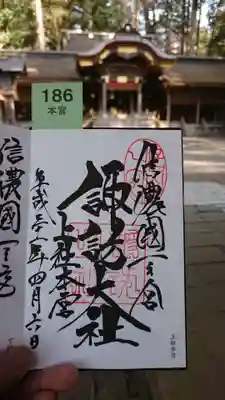 186
本宮
信濃國一之宮
諏訪大社
上社本宮
平成三十一年四月六日
信濃國一之宮